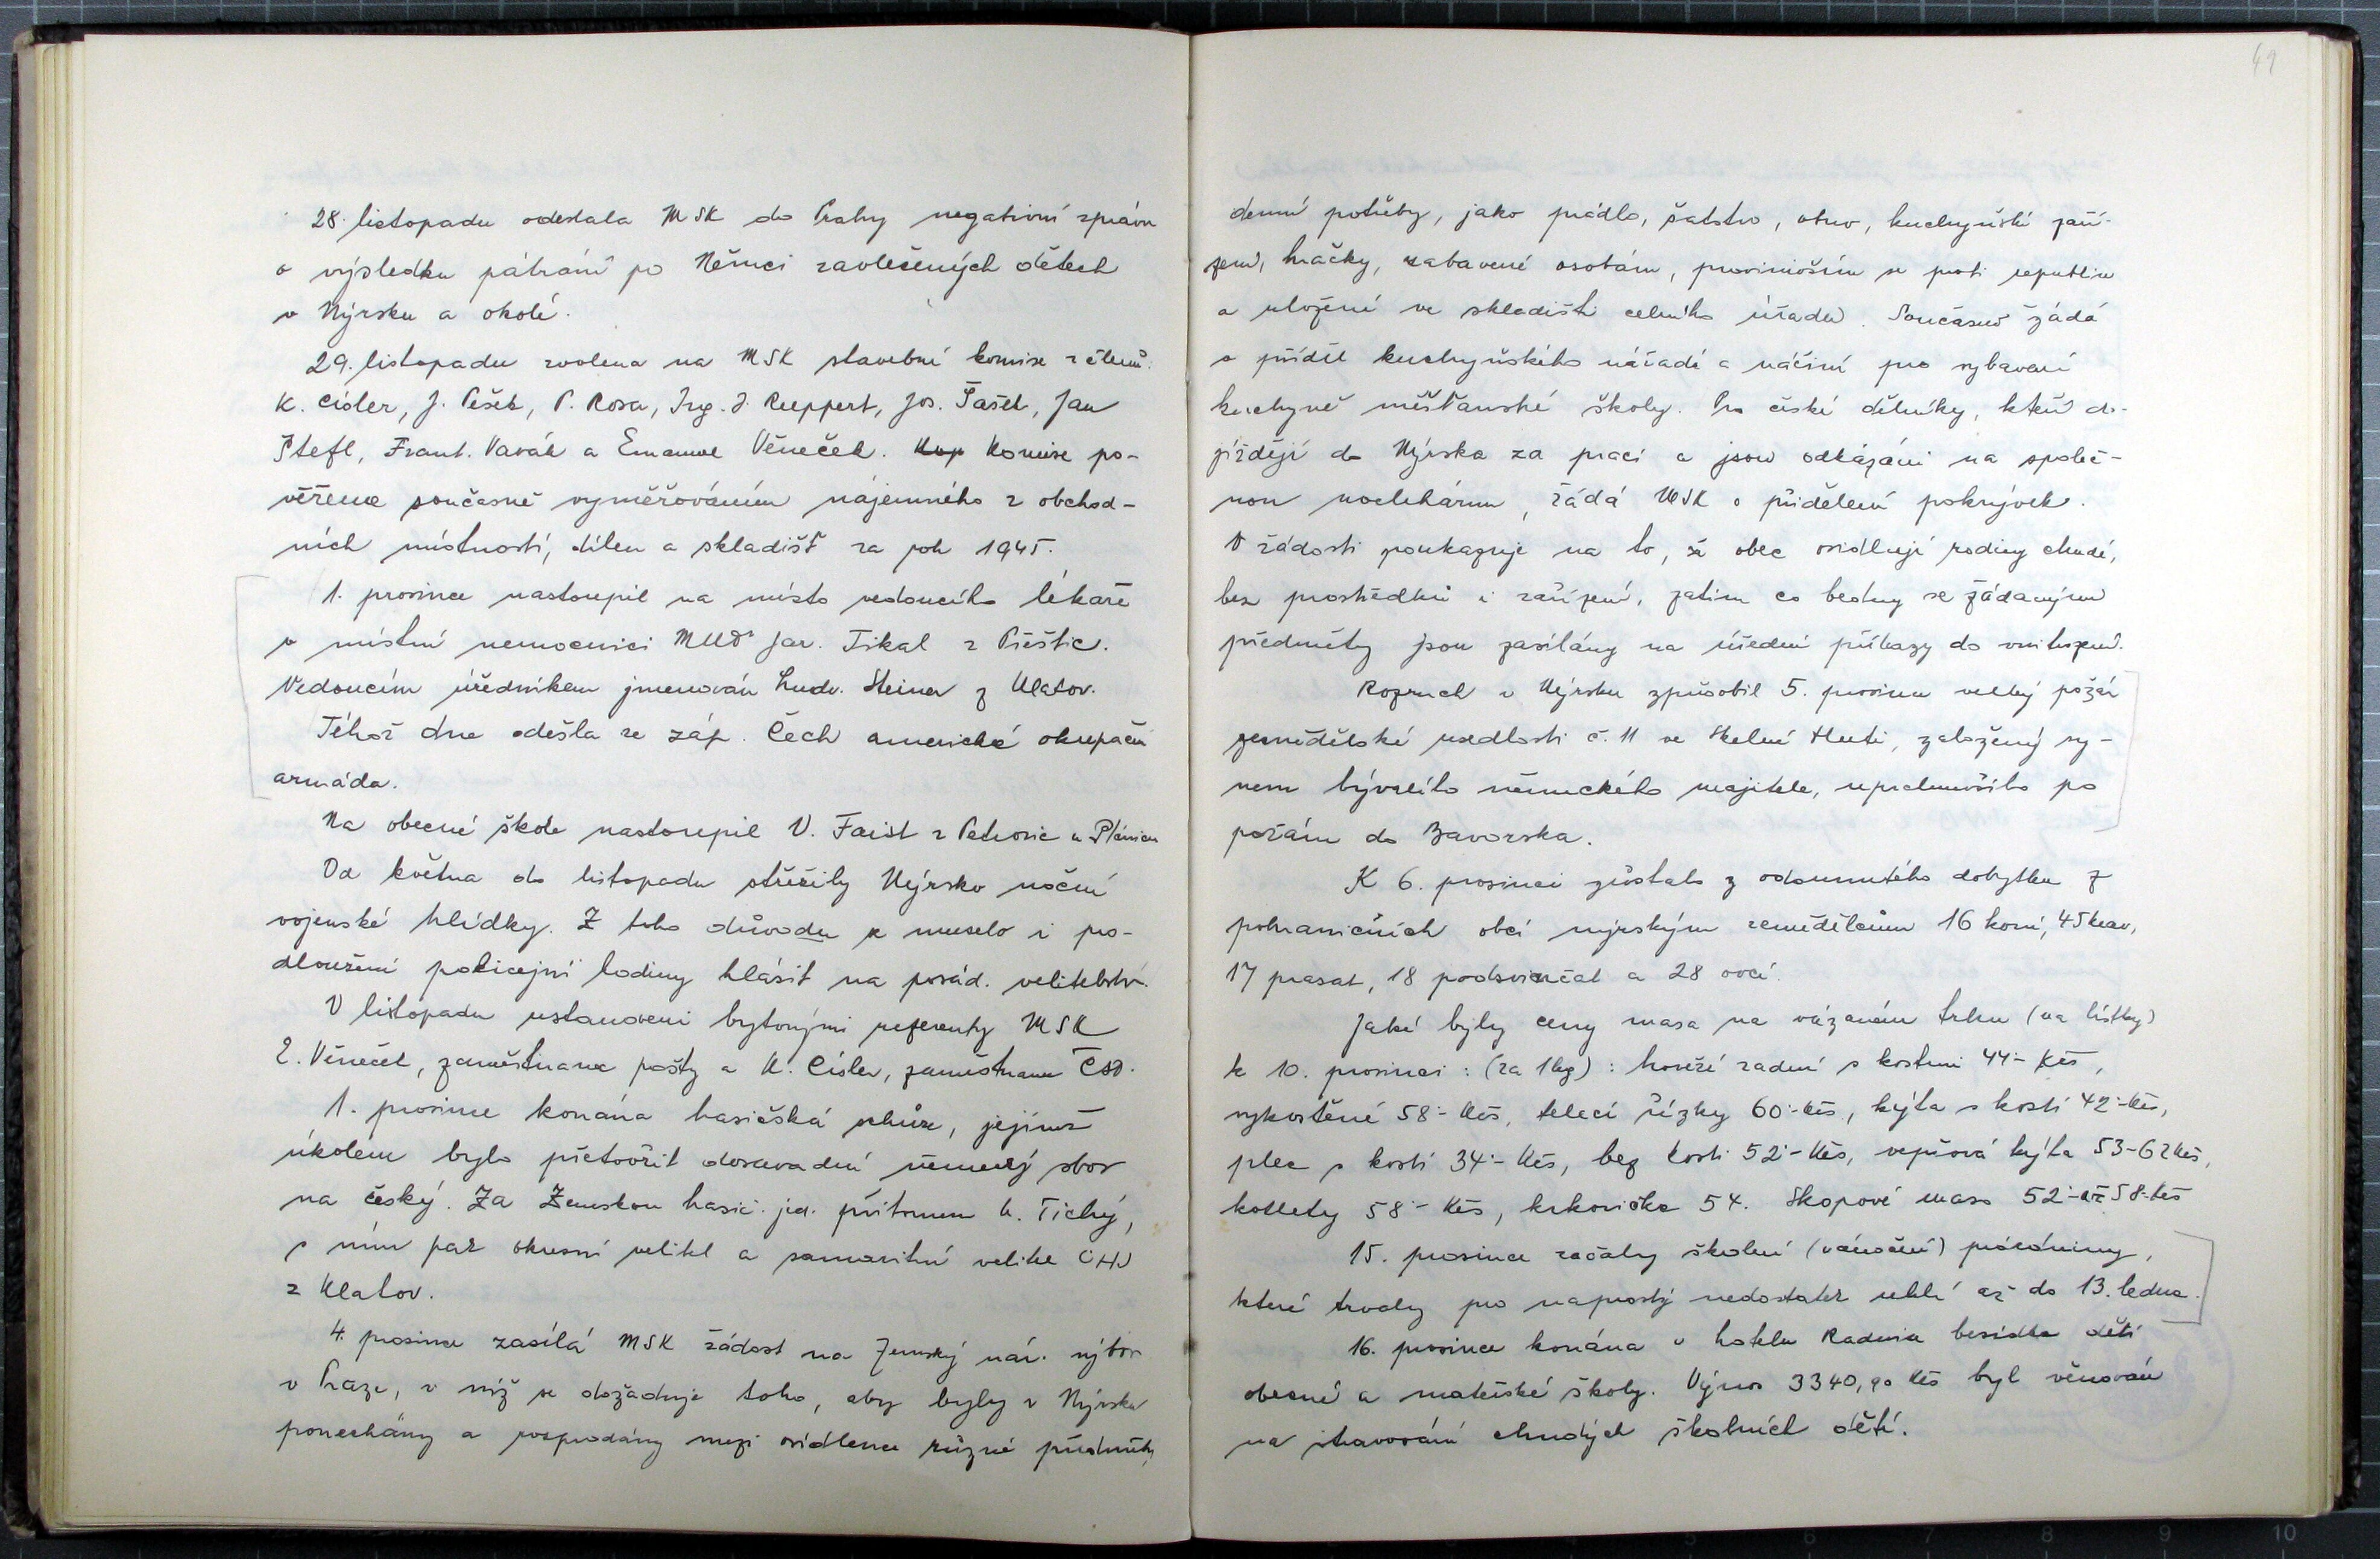 49
28. listopadu odeslala MSK do Prahy negativní zprávu
o výsledku pátrání po Němci zavlečených dětech
v Nýrsku a okolí.
29. listopadu zvolena na MSK stavební komise z členů:
K. Cisler, J. Pešek, P. Rosa, Ing. J. Ruppert, Jos. Tašek, Jan
Štefl, Frant. Vavák a Emanuel Věneček. Komise po-
věřena současně vyměřováním nájemného z obchod-
ních místností, dílen a skladišť za rok 1945.
1. prosince nastoupil na místo vedoucího lékaře
v místní nemocnici MUDr Jar. Tikal z Přeštic.
Vedoucím úředníkem jmenován Ludv. Steiner z Klatov.
Téhož dne odešla ze záp. Čech americká okupační
armáda.
Na obecné škole nastoupil V. Faist z Petrovic u Plánice
Od května do listopadu střežily Nýrsko noční
vojenské hlídky. Z toho důvodu se muselo i pro-
dloužení policejní hodiny hlásit na posád. velitelství.
V listopadu ustanoveni bytovými referenty MSK
E. Věneček, zaměstnanec pošty a K. Cisler, zaměstnanec ČSD.
1. prosince konána hasičská schůze, jejímž
úkolem bylo přetvořit dosavadní německý sbor
na český. Za Zemskou hasič. jed. přítomen K. Tichý,
s ním pak okresní velitel a samaritní velitel OHJ
z Klatov.
4. prosince zasílá MSK žádost na Zemský nár. výbor
v Praze, v níž se dožaduje toho, aby byly v Nýrsku
ponechány a rozprodány mezi osídlence různé předměty
denní potřeby, jako prádlo, šatstvo, obuv, kuchyňské zaří-
zení, hračky, zabavené osobám, provinivším se proti republice
a uložené ve skladišti celního úřadu. Současně žádá
o příděl kuchyňského nářadí a náčiní pro vybavení
kuchyně měšťanské školy. Pro české dělníky, kteří do-
jíždějí do Nýrska za prací a jsou odkázáni na společ-
nou noclehárnu, žádá MSK o přidělení pokrývek.
V žádosti poukazuje na to, že obec osidlují rodiny chudé,
bez prostředků i zařízení, zatím co bedny se žádanými
předměty jsou zasílány na úřední příkazy do vnitrozemí.
Rozruch v Nýrsku způsobil 5. prosince velký požár
zemědělské usedlosti č. 11 ve Skelné Huti, založený sy-
nem bývalého německého majitele, uprchnuvšího po
požáru do Bavorska.
K 6. prosinci zůstalo z odsunutého dobytka z
pohraničních obcí nýrským zemědělcům 16 koní, 45 krav,
17 prasat, 18 podsvinčat a 28 ovcí.
Jaké byly ceny masa na vázaném trhu (na lístky)
k 10. prosinci: (za 1 kg): hovězí zadní s kostmi 44·- Kčs,
vykostěné 58·- Kčs, telecí řízky 60·- Kčs, kýta s kostí 42·- Kčs,
plec s kostí 34·- Kčs, bez kosti 52·- Kčs, vepřová kýta 53-62 Kčs,
kotlety 58·- Kčs, krkovička 54. Skopové maso 52·- až 58·- Kčs
15. prosince začaly školní (vánoční) prázdniny,
které trvaly pro naprostý nedostatek uhlí až do 13. ledna.
16. prosince konána v hotelu Radnice besídka dětí
obecné a mateřské školy. Výnos 3340,90 Kčs byl věnován
na stravování chudých školních dětí.